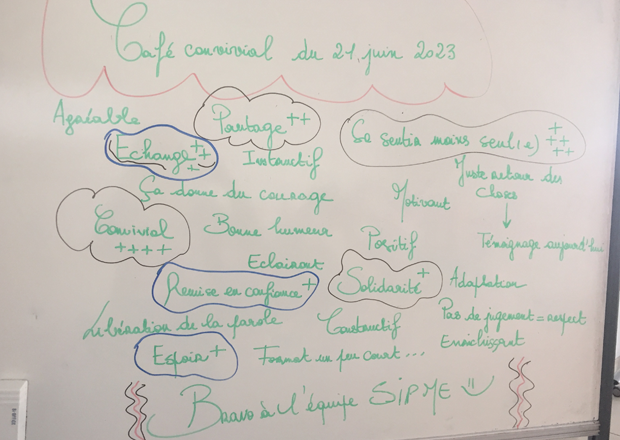 Café convivial du 21 juin 2023
Agréable
Partage ++
Se sentir moins seul(e) +++++
Echange +++
Instructif
Juste retour des
choses
Ça donne du courage
Motivant
Convivial
++++
Bonne humeur
Positif
Témoignage aujourd'hui
Eclairant
Remise en confiance +
Solidarité +
Adaptation
Libération de la parole
Constructif
Pas de jugement = respect
Enrichissant
Espoir +
Format un peu court...
Bravo à l'équipe SIPME